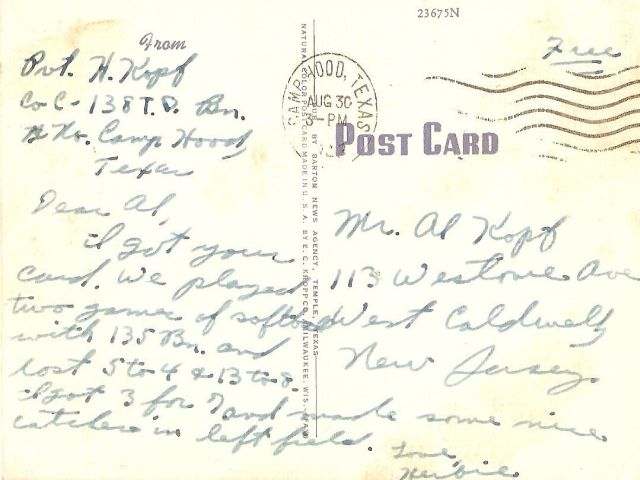 23675N
From
Free
Pvt. H. Kopf
Co C - 138 T.D. Bn.
Camp Hood,
Texas
CAMP HOOD, TEXAS
AUG 30
3-PM
POST CARD
NATURAL COLOR POST CARD MADE IN U. S. A. BY E. C. KROPP CO., MILWAUKEE, WIS.
BY BARTON NEWS AGENCY, TEMPLE, TEXAS
Dear Al,
I got your
card. We played
two games of softball
with 135 Bn. and
lost 5 to 4 & 13 to 8.
I got 3 for 7 and made some nice
catches in left field.
Love,
Herbie
Mr. Al Kopf
113 Westover Ave
West Caldwell,
New Jersey